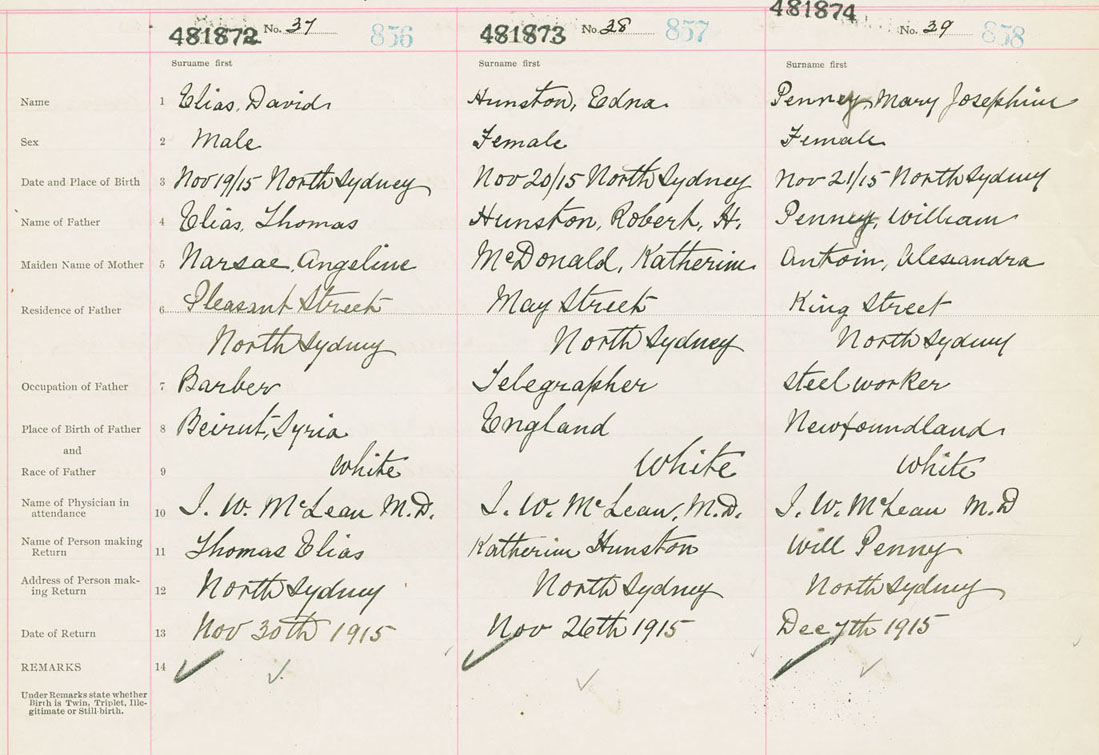 481872 No. 37 856 481873 No. 38 857 481874 No. 39 858
Surname first Surname first Surname first
Name 1 Elias, David Hunston, Edna Penney, Mary Josephine
Sex 2 Male Female Female
Date and Place of Birth 3 Nov 19/15 North Sydney Nov 20/15 North Sydney Nov 21/15 North Sydney
Name of Father 4 Elias, Thomas Hunston, Robert, H. Penney, William
Maiden Name of Mother 5 Narsae, Angeline McDonald, Katherine Antoin, Alexandra
Residence of Father 6 Pleasant Street May Street King Street
North Sydney North Sydney North Sydney
Occupation of Father 7 Barber Telegrapher Steel worker
Place of Birth of Father 8 Beirut, Syria England Newfoundland
and
Race of Father 9 White White White
Name of Physician in
attendance 10 J. W. McLean M.D. J. W. McLean, M.D. J. W. McLean M.D
Name of Person making
Return 11 Thomas Elias Katherine Hunston Will Penny
Address of Person mak-
ing Return 12 North Sydney North Sydney North Sydney
Date of Return 13 Nov 30th 1915 Nov 26th 1915 Dec 7th 1915
REMARKS 14
Under Remarks state whether
Birth is Twin, Triplet, Ille-
gitimate or Still-birth.